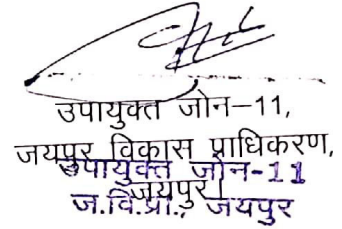 उपायुक्त जोन–11,
जयपुर विकास प्राधिकरण,
उपायुक्त जोन-11
जयपुर।
ज.वि.प्रा., जयपुर